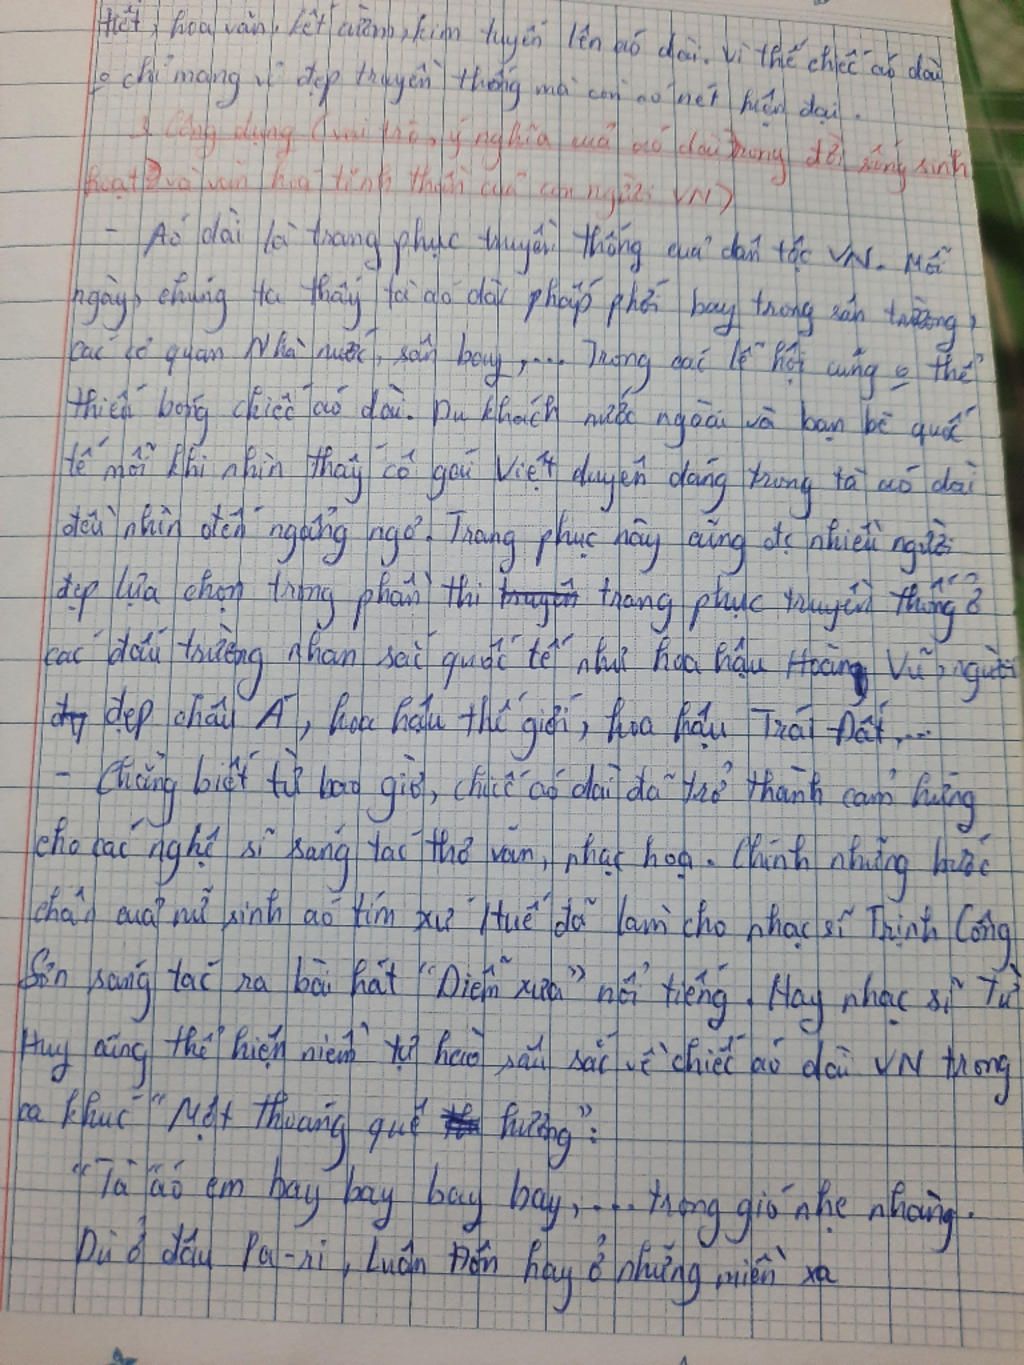 tiết, hoa văn, kết cườm, kim tuyến lên áo dài. Vì thế chiếc áo dài
o chỉ mang vẻ đẹp truyền thống mà còn có nét hiện đại.
3 Công dụng (vai trò, ý nghĩa của áo dài trong đời sống sinh
hoạt và văn hoá tinh thần của con người VN)
- Áo dài là trang phục truyền thống của dân tộc VN. Mỗi
ngày, chúng ta thấy tà áo dài phấp phới bay trong sân trường,
các cơ quan Nhà nước, sân bay,... Trong các lễ hội cũng o thể
thiếu bóng chiếc áo dài. Du khách nước ngoài và bạn bè quốc
tế mỗi khi nhìn thấy cô gái Việt duyên dáng trong tà áo dài
đều nhìn đến ngẩng ngơ. Trang phục này cũng đc nhiều người
đẹp lựa chọn trong phần thi trang phục truyền thống ở
các đấu trường nhan sắc quốc tế như hoa hậu Hoàng Vũ, người
đẹp châu Á, hoa hậu thế giới, hoa hậu Trái Đất,...
- Chẳng biết từ bao giờ, chiếc áo dài đã trở thành cảm hứng
cho các nghệ sĩ sáng tác thơ văn, nhạc hoạ. Chính những bước
chân của nữ sinh áo tím xứ Huế đã làm cho nhạc sĩ Trịnh Công
Sơn sáng tác ra bài hát "Diễm xưa" nổi tiếng. Hay nhạc sĩ Từ
Huy cũng thể hiện niềm tự hào sâu sắc về chiếc áo dài VN trong
ca khúc "Một thoáng quê hương":
"Tà áo em bay bay bay bay,.... trong gió nhẹ nhàng.
Dù ở đâu Pa-ri, Luân Đôn hay ở những miền xa